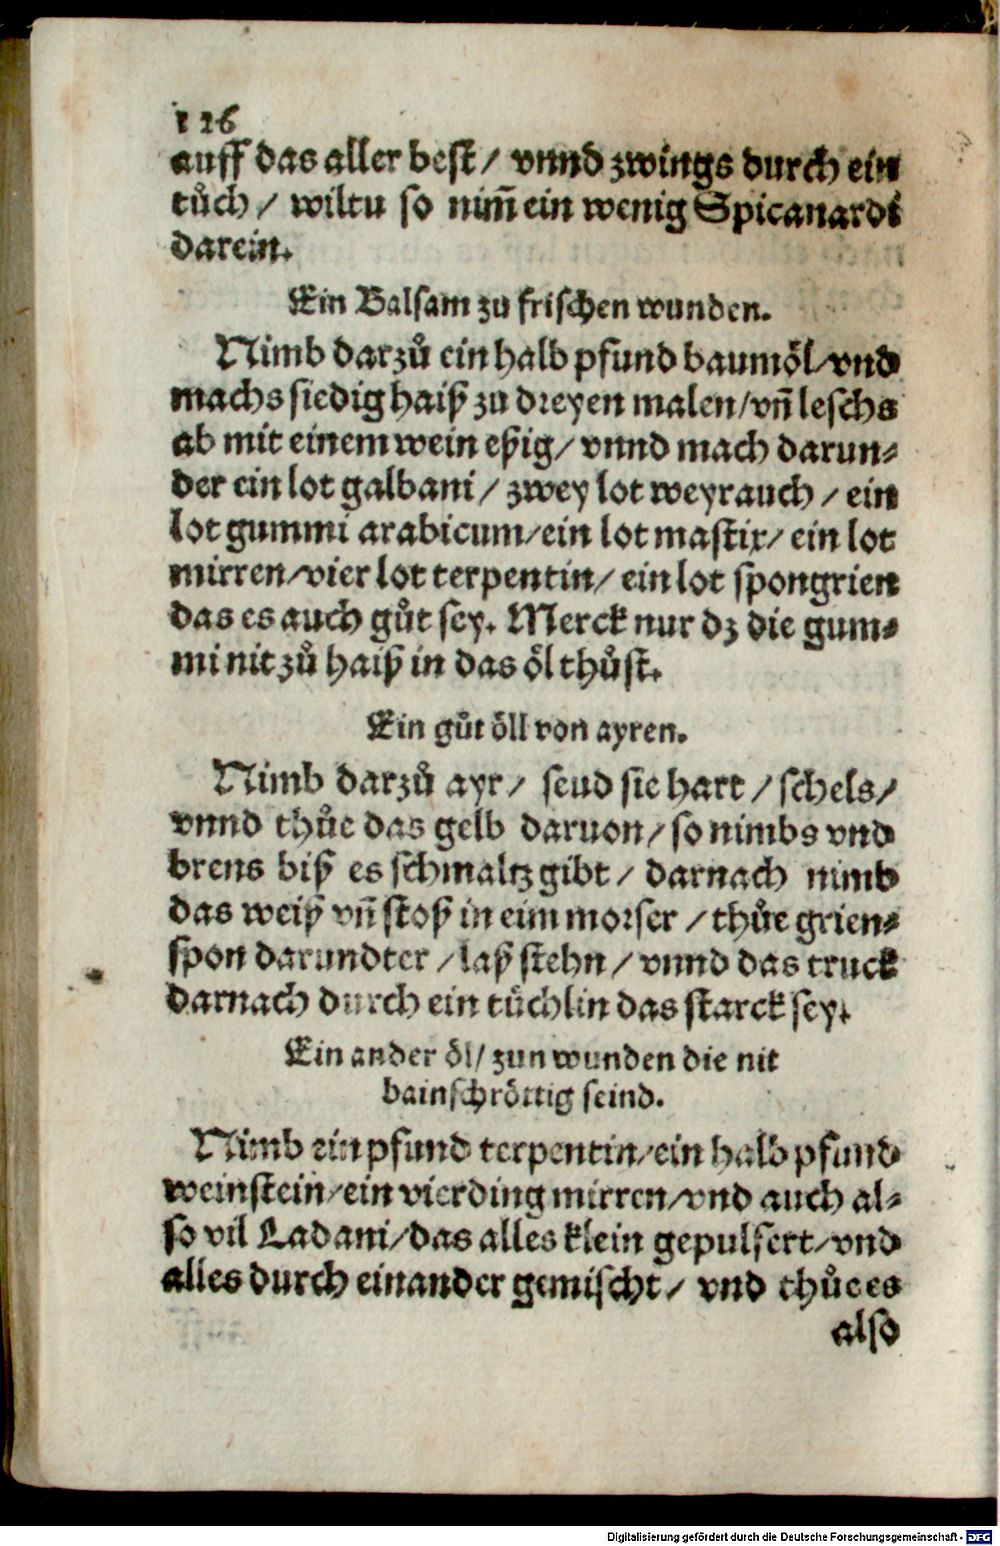 126
auff das aller best / vnnd zwings durch ein
tůch / wiltu so nim̄ ein wenig Spicanardi
darein.
Ein Balsam zu frischen wunden.
Nimb darzů ein halb pfund baumöl / vnd
machs siedig haiß zu dreyen malen / vn̄ leschs
ab mit einem wein eßig / vnnd mach darun⸗
der ein lot galbani / zwey lot weyrauch / ein
lot gummi arabicum / ein lot mastix / ein lot
mirren / vier lot terpentin / ein lot spongrien
das es auch gůt sey. Merck nur dz die gum⸗
mi nit zů haiß in das öl thůst.
Ein gůt öll von ayren.
Nimb darzů ayr / seud sie hart / schels /
vnnd thůe das gelb daruon / so nimbs vnd
brens biß es schmaltz gibt / darnach nimb
das weiß vn̄ stoß in eim morser / thůe grien⸗
spon darundter / laß stehn / vnnd das truck
darnach durch ein tüchlin das starck sey.
Ein ander öl / zun wunden die nit
bainschröttig seind.
Nimb ein pfund terpentin / ein halb pfund
weinstein / ein vierding mirren / vnd auch al⸗
so vil Ladani / das alles klein gepulfert / vnd
alles durch einander gemischt / vnd thůe es
also
Digitalisierung gefördert durch die Deutsche Forschungsgemeinschaft - DFG